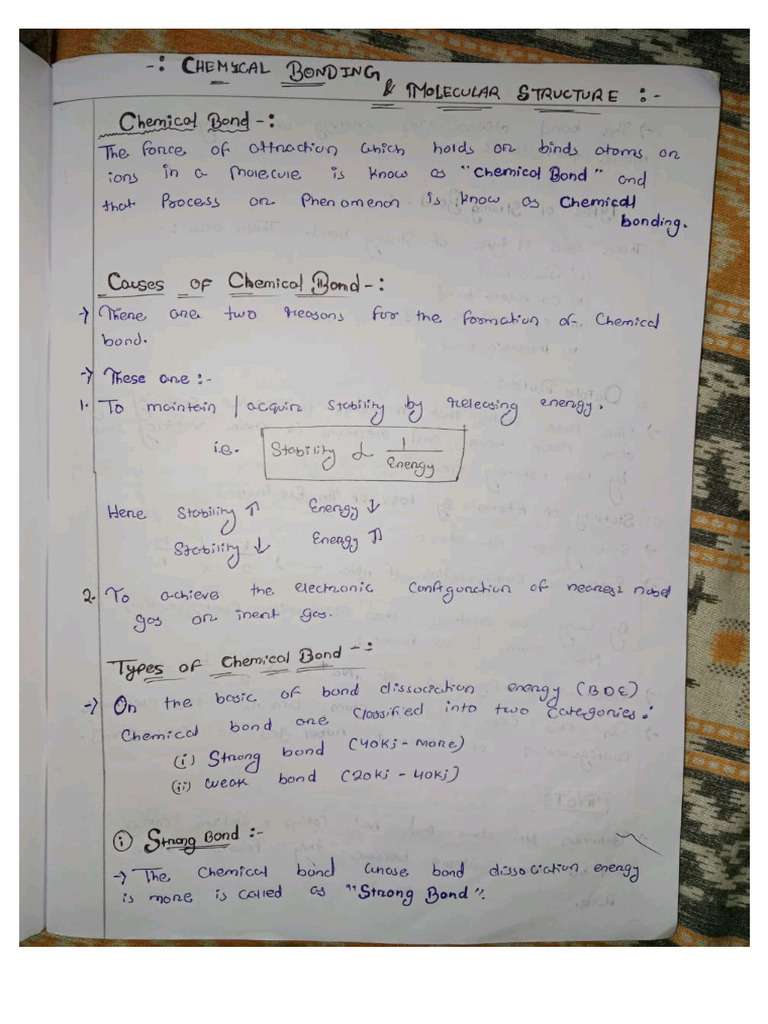 -: CHEMICAL BONDING
& MOLECULAR STRUCTURE :-
Chemical Bond -:
The force of attraction which holds or binds atoms or
ions in a molecule is know as "Chemical Bond" and
that Process or Phenomenon is know as Chemicall
bonding.
Causes of Chemical Bond -:
→ There are two reasons for the formation of Chemical
bond.
→ These are :-
1. To maintain / acquir stability by releasing energy.
i.e. Stability ∝ 1/Energy
Here Stability ↑ Energy ↓
Stability ↓ Energy ↑
2. To achieve the electronic configuration of nearest nobel
gas or inert gas.
Types of Chemical Bond -:
→ On the basic of bond dissociation energy (BDE)
Chemical bond are classified into two categories :
(i) Strong bond (40kj - more)
(ii) weak bond (20kj - 40kj)
(i) Strong Bond :-
→ The Chemical bond whose bond dissociation energy
is more is called as "Strong Bond".